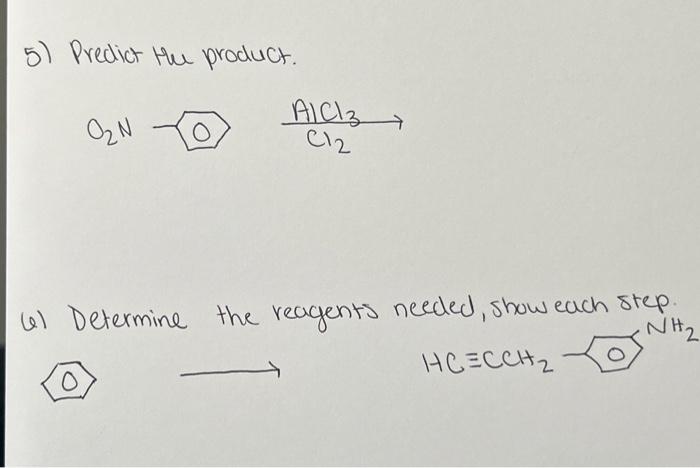 5) Predict the product.
O₂N
AlCl₃
Cl₂
6) Determine the reagents needed, show each step.
NH₂
HC≡CCH₂